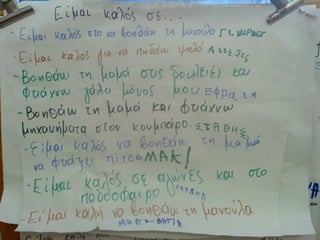 Είμαι καλός σε...
- Είμαι καλός στο να βοηθάω τη μανούλα ΓΙΩΡΓΟΣ
- Είμαι καλός για να πηδάω ψηλά
- Βοηθάω τη μαμά στις δουλειές και
φτιάχνω γάλα μόνος μου
- Βοηθάω τη μαμά και φτιάχνω
μηχανήματα στον κουμπάρο-
- Είμαι καλός να βοηθάω τη μαμά
να φτιάξει πίτσα ΜΑΚ
- Είμαι καλός σε αγώνες και στο
ποδόσφαιρο
- Είμαι καλή να βοηθάω τη μανούλα